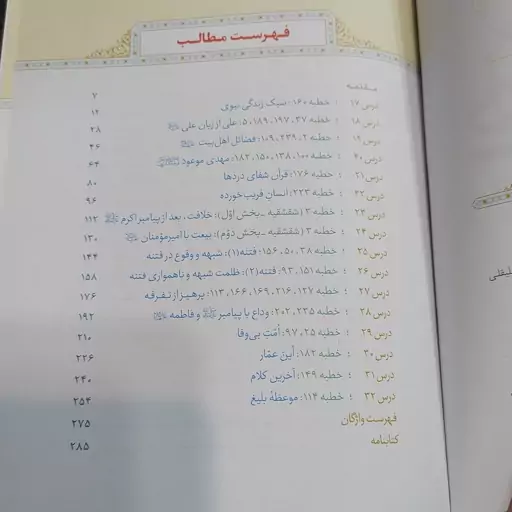 فهرست مطالب
مقدمه ۷
درس ۱۷ : خطبه ۱۶۰: سبک زندگی نبوی ۱۲
درس ۱۸ : خطبه ۳۷، ۱۹۷، ۱۸۹، ۵: علی از زبان علی ۲۸
درس ۱۹ : خطبه ۲، ۲۳۹، ۱۰۹: فضائل اهل‌بیت ۴۶
درس ۲۰ : خطبه ۱۰۰، ۱۳۸، ۱۵۰، ۱۸۲: مهدی موعود ۶۴
درس ۲۱ : خطبه ۱۷۶: قرآن شفای دردها ۸۰
درس ۲۲ : خطبه ۲۲۳: انسان فریب‌خورده ۹۶
درس ۲۳ : خطبه ۳ (شقشقیه - بخش اوّل): خلافت، بعد از پیامبر اکرم ۱۱۲
درس ۲۴ : خطبه ۳ (شقشقیه - بخش دوّم): بیعت با امیرمؤمنان ۱۳۰
درس ۲۵ : خطبه ۳۸، ۵۰، ۱۵۶: فتنه(۱): شبهه و وقوع در فتنه ۱۴۴
درس ۲۶ : خطبه ۱۵۱، ۹۳: فتنه(۲): ظلمت شبهه و ناهمواری فتنه ۱۵۸
درس ۲۷ : خطبه ۱۲۷، ۲۱۶، ۱۶۹، ۱۶۶، ۱۱۳: پرهیز از تفرقه ۱۷۶
درس ۲۸ : خطبه ۲۳۵، ۲۰۲: وداع با پیامبر و فاطمه ۱۹۲
درس ۲۹ : خطبه ۲۵، ۹۷: اُمّتِ بی‌وفا ۲۱۰
درس ۳۰ : خطبه ۱۸۲: أینَ عمّار ۲۲۶
درس ۳۱ : خطبه ۱۴۹: آخرین کلام ۲۴۰
درس ۳۲ : خطبه ۱۱۴: موعظهٔ بلیغ ۲۵۴
فهرست واژگان ۲۷۵
کتابنامه ۲۸۵